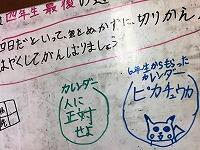 四年生最後の
四日だといって、気をぬかずに、切りかえ
はやくしてがんばりましょう
カレンダー
人に
正対
せよ
6年生からもらった
カレンダー
ピカチュウカ